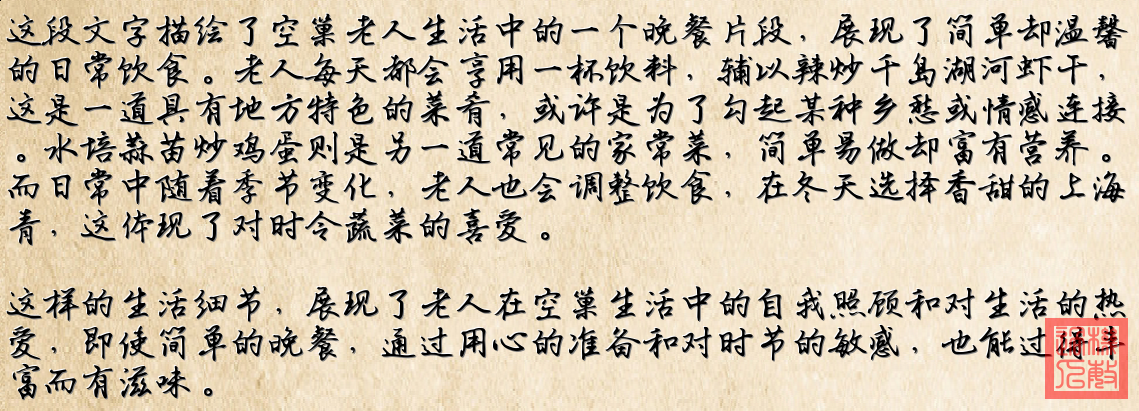 这段文字描绘了空巢老人生活中的一个晚餐片段，展现了简单却温馨
的日常饮食。老人每天都会享用一杯饮料，辅以辣炒千岛湖河虾干，
这是一道具有地方特色的菜肴，或许是为了勾起某种乡愁或情感连接
。水培蒜苗炒鸡蛋则是另一道常见的家常菜，简单易做却富有营养。
而日常中随着季节变化，老人也会调整饮食，在冬天选择香甜的上海
青，这体现了对时令蔬菜的喜爱。
这样的生活细节，展现了老人在空巢生活中的自我照顾和对生活的热
爱，即使简单的晚餐，通过用心的准备和对时节的敏感，也能过得丰
富而有滋味。